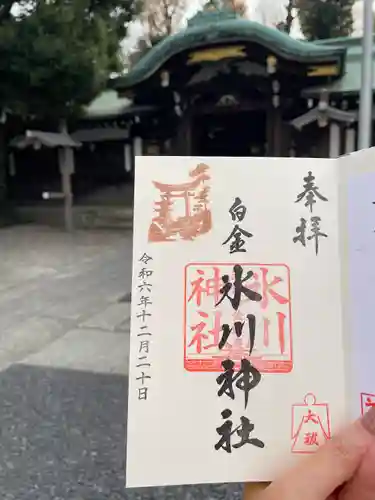 奉拝
白金
氷川神社
氷川
神社
大祓
令和六年十二月二十日